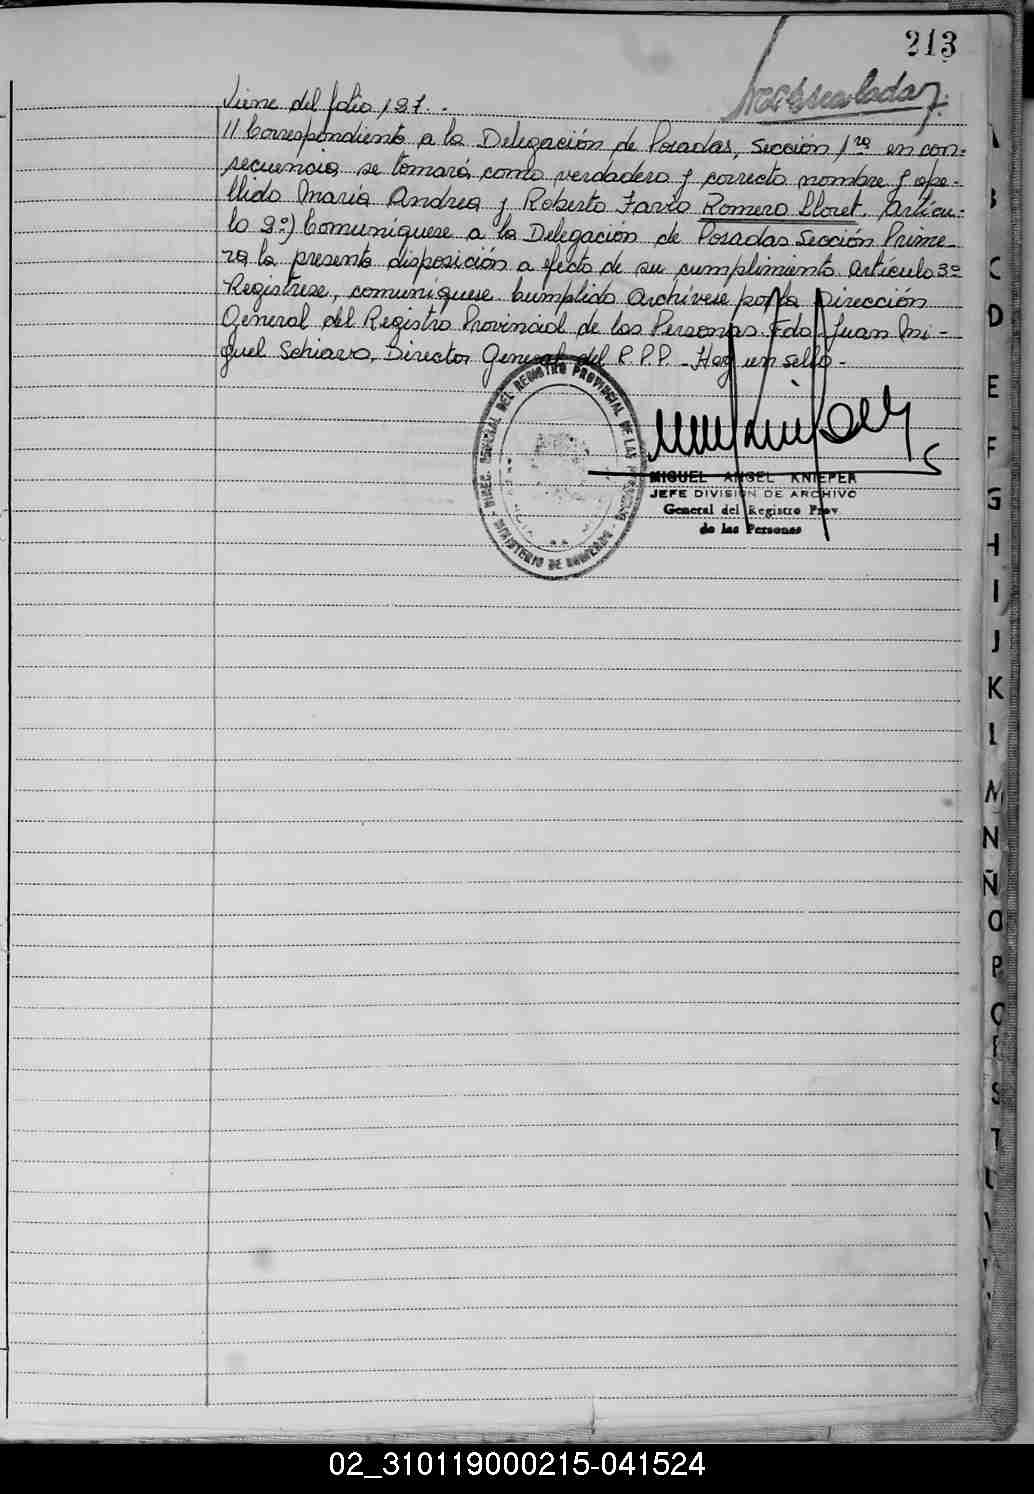 213
Viene del folio 197.-
// Correspondiente a la Delegación de Posadas, Sección 1ra en con-
secuencia se tomará como verdadero y correcto nombre y ape-
llido María Andrea y Roberto Favio Romero Lloret. Artícu-
lo 2º) Comuníquese a la Delegación de Posadas Sección Prime-
ra la presente disposición a efecto de su cumplimiento. Artículo 3º
Regístrese, comuníquese. Cumplido Archívese por la Dirección
General del Registro Provincial de las Personas. Fdo. Juan Mi-
guel Schiavo, Director General del R.P.P. - Hay un sello -
DIREC. GENERAL DEL REGISTRO PROVINCIAL DE LAS PERSONAS
MINISTERIO DE GOBIERNO
MIGUEL ANGEL KNIEPER
JEFE DIVISION DE ARCHIVO
General del Registro Prov.
de las Personas
B
C
D
E
F
G
H
I
J
K
L
M
N
Ñ
O
P
Q
S
T
U
V
02_310119000215-041524